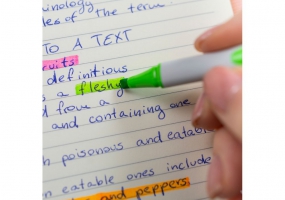 les of the term.
TO A TEXT
definitions
a fleshy
d from a
and containing one
h poisonous and eatable
n eatable ones include
and peppers